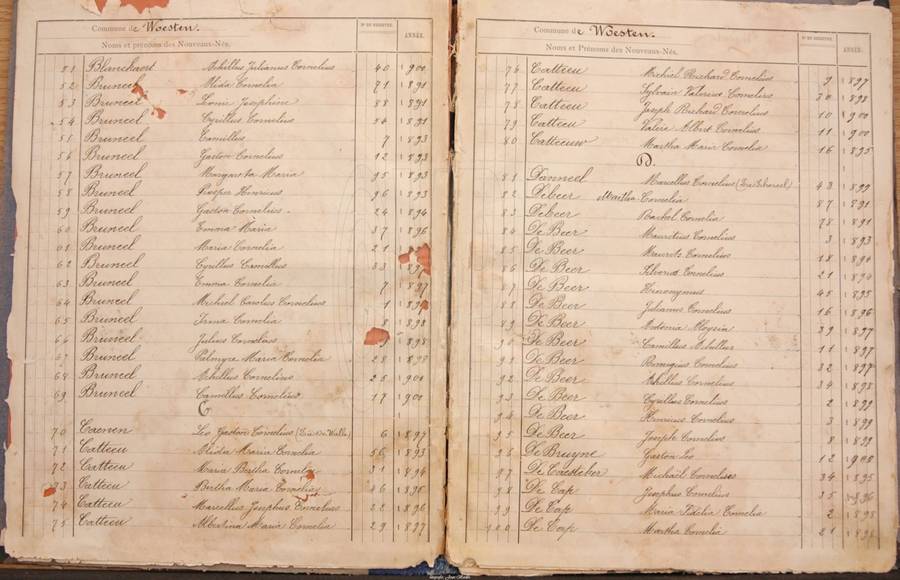 Commune de Woesten.
N° DU REGISTRE.
ANNÉE.
Noms et prénoms des Nouveaux-Nés.
51 Blanckaert Achillus Julianus Cornelius 40 1900
52 Bruneel Alida Cornelia 71 1891
53 Bruneel Leonie Josephine 88 1891
54 Bruneel Cyrillus Cornelius 54 1891
55 Bruneel Camillus 7 1893
56 Bruneel Gaston Cornelius 12 1893
57 Bruneel Margareta Maria 95 1893
58 Bruneel Prosper Henricus 96 1893
59 Bruneel Gaston Cornelius 24 1894
60 Bruneel Emma Maria 37 1896
61 Bruneel Maria Cornelia 21
62 Bruneel Cyrillus Camillus 33
63 Bruneel Emma Cornelia 7 1897
64 Bruneel Michiel Carolus Cornelius 1
65 Bruneel Irma Cornelia 8 1898
66 Bruneel Julius Cornelius 1898
67 Bruneel Palmyre Maria Cornelia 28
68 Bruneel Achillus Cornelius 25 1900
69 Bruneel Camillus Cornelius 17 1900
C
70 Caenen Leo Gaston Cornelius 6 1897
71 Catteeu Alida Maria Cornelia 56 1893
72 Catteeu Maria Bertha Cornelia 31 1894
73 Catteeu Bertha Maria Cornelia 46 1895
74 Catteeu Marcellus Josephus Cornelius 22 1896
75 Catteeu Albertina Maria Cornelia 29 1897
Commune de Woesten.
N° DU REGISTRE.
ANNÉE.
Noms et Prénoms des Nouveaux-Nés.
76 Catteeu Michiel Richard Cornelius 9 1897
77 Catteeu Sylvain Valerius Cornelius 30 1898
78 Catteeu Joseph Richard Cornelius 10 1900
79 Catteeu Valere Albert Cornelius 11 1900
80 Catteeuw Martha Maria Cornelia 16 1895
D.
81 Danneel Marcellus Cornelius 43 1899
82 Debeer Martha Cornelia 87 1891
83 Debeer Rachel Cornelia 78 1891
84 De Beer Mauritius Cornelius 3 1893
85 De Beer Maurits Cornelius 18 1894
86 De Beer Cornelius 21 1894
87 De Beer Hieronymus 45 1895
88 De Beer Julianus Cornelius 16 1896
89 De Beer Aloysia 39 1897
90 De Beer Camillus Achillus 11 1897
91 De Beer Remigius Cornelius 32 1897
92 De Beer Achillus Cornelius 34 1898
93 De Beer Cyrillus Cornelius 2 1899
94 De Beer Henricus Cornelius 3 1899
95 De Beer Joseph Cornelius 8 1899
96 De Bruyne Gaston Leo 12 1908
97 De Caesteker Michaël Cornelius 34 1895
98 De Cap Josephus Cornelius 35 1896
99 De Cap Maria Fidelia Cornelia 2 1898
100 De Cap Martha Cornelia 21